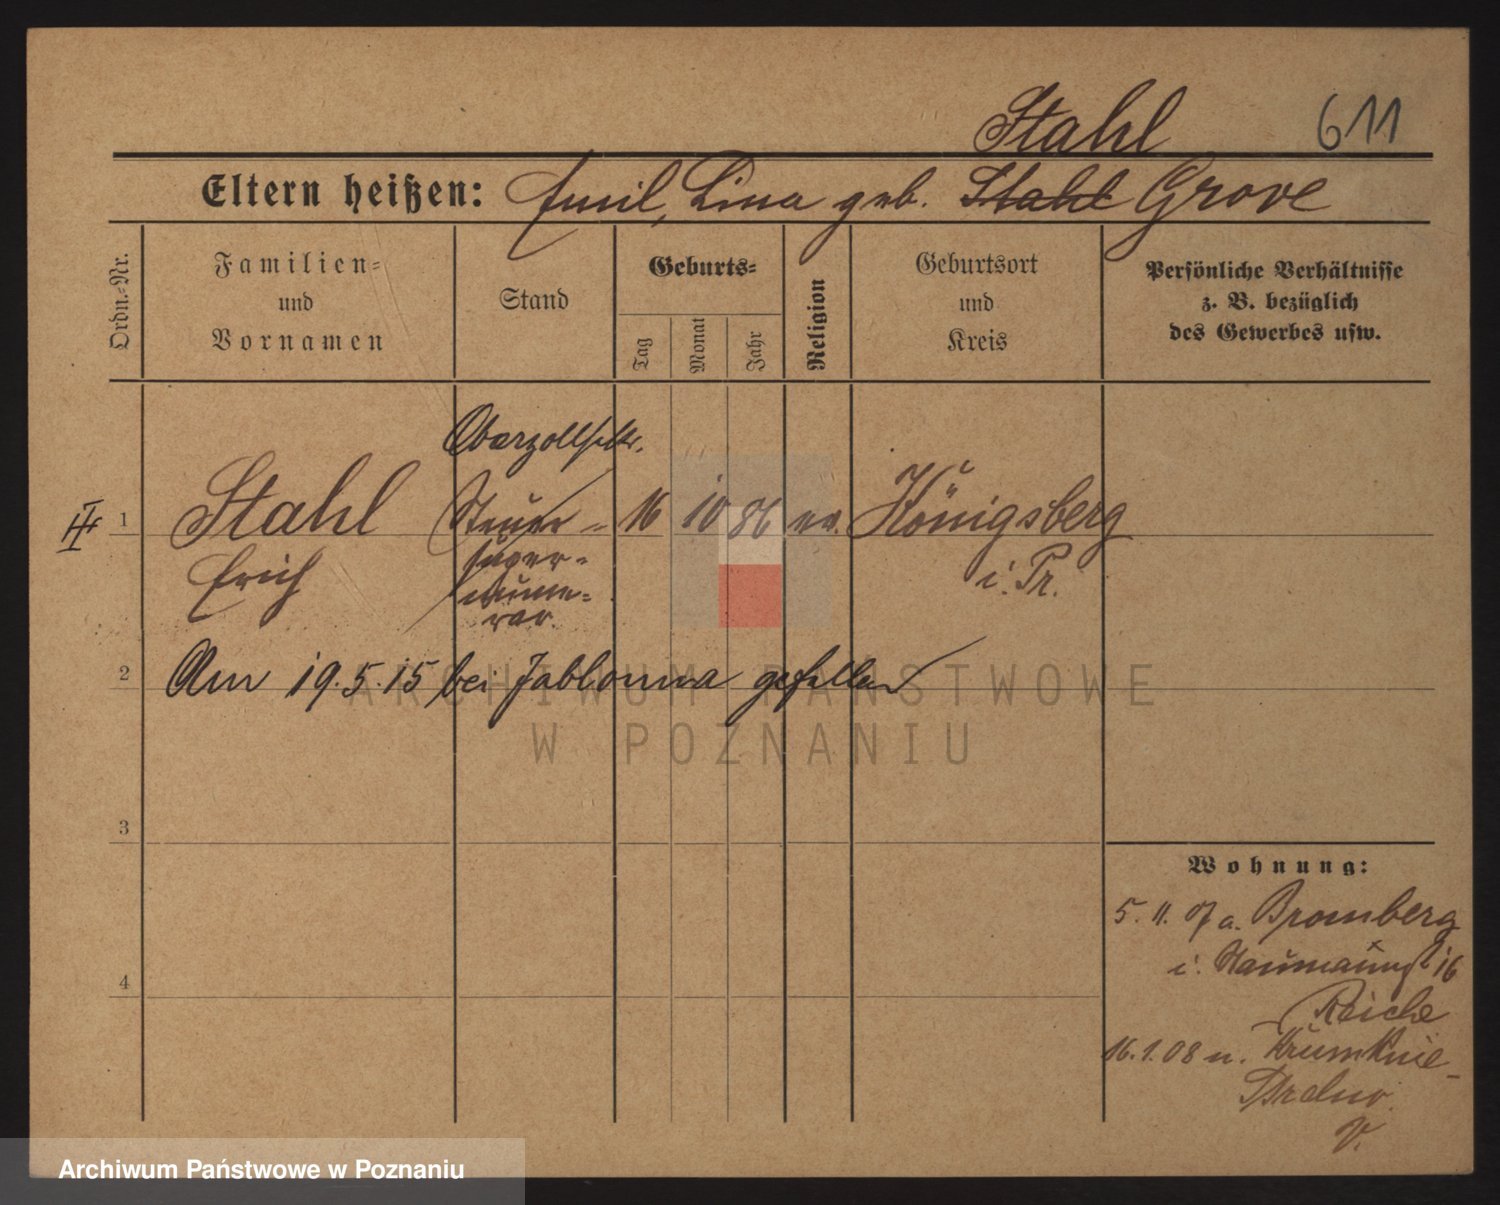 Stahl 611
Eltern heißen: Emil, Lina geb. Stahl Grove
Ordn.-Nr.
Familien-
und
Vornamen
Stand
Geburts-
Tag
Monat
Jahr
Religion
Geburtsort
und
Kreis
Persönliche Verhältnisse
z. B. bezüglich
des Gewerbes usw.
Oberzollsektr.
1 Stahl Steuer- 16 10 86 ev. Königsberg
Erich super- i. Pr.
nume-
rar.
2 Am 19.5.15 bei Jablonna gefallen
ARCHIWUM PAŃSTWOWE
W POZNANIU
3
Wohnung:
5. 11. 07 a. Bromberg
i. Naumannst 16
4
Reiche
16.1.08 n. Krumknie-
Strelno.
V.
Archiwum Państwowe w Poznaniu